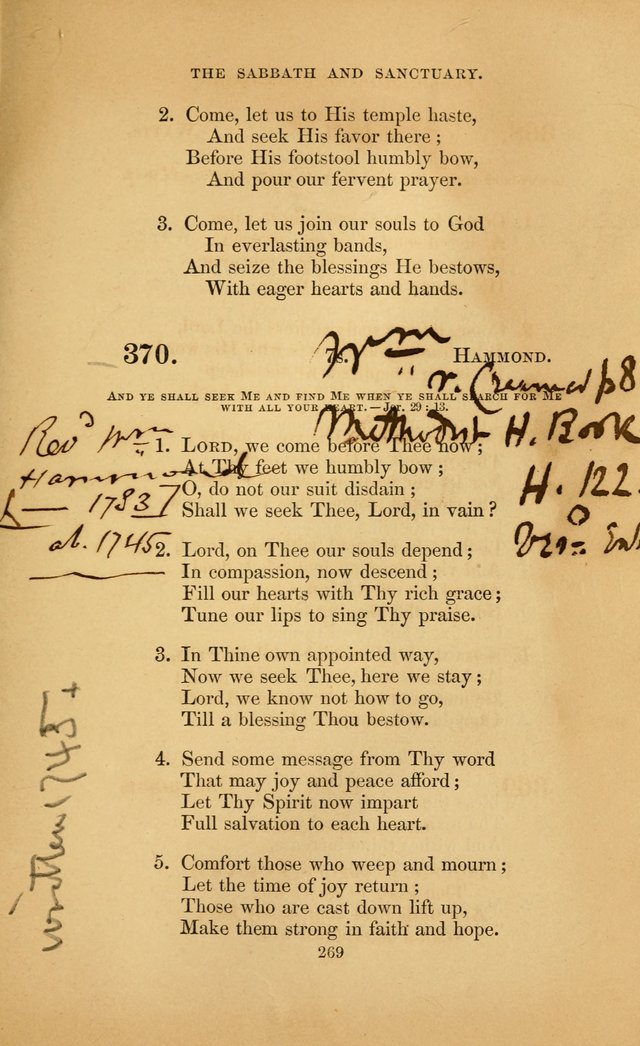 THE SABBATH AND SANCTUARY.
2. Come, let us to His temple haste,
And seek His favor there ;
Before His footstool humbly bow,
And pour our fervent prayer.
3. Come, let us join our souls to God
In everlasting bands,
And seize the blessings He bestows,
With eager hearts and hands.
Wm
370. 7s. HAMMOND.
AND YE SHALL SEEK ME AND FIND ME WHEN YE SHALL SEARCH FOR ME
WITH ALL YOUR HEART. — Jer. 29 : 13.
Methodist H. Book
H. 122
Revd Wm
Hammond
1783
ab. 1745
1. LORD, we come before Thee now ;
At Thy feet we humbly bow ;
O, do not our suit disdain ;
Shall we seek Thee, Lord, in vain ?
2. Lord, on Thee our souls depend ;
In compassion, now descend ;
Fill our hearts with Thy rich grace ;
Tune our lips to sing Thy praise.
3. In Thine own appointed way,
Now we seek Thee, here we stay ;
Lord, we know not how to go,
Till a blessing Thou bestow.
written 1745 +
4. Send some message from Thy word
That may joy and peace afford ;
Let Thy Spirit now impart
Full salvation to each heart.
5. Comfort those who weep and mourn ;
Let the time of joy return ;
Those who are cast down lift up,
Make them strong in faith and hope.
269